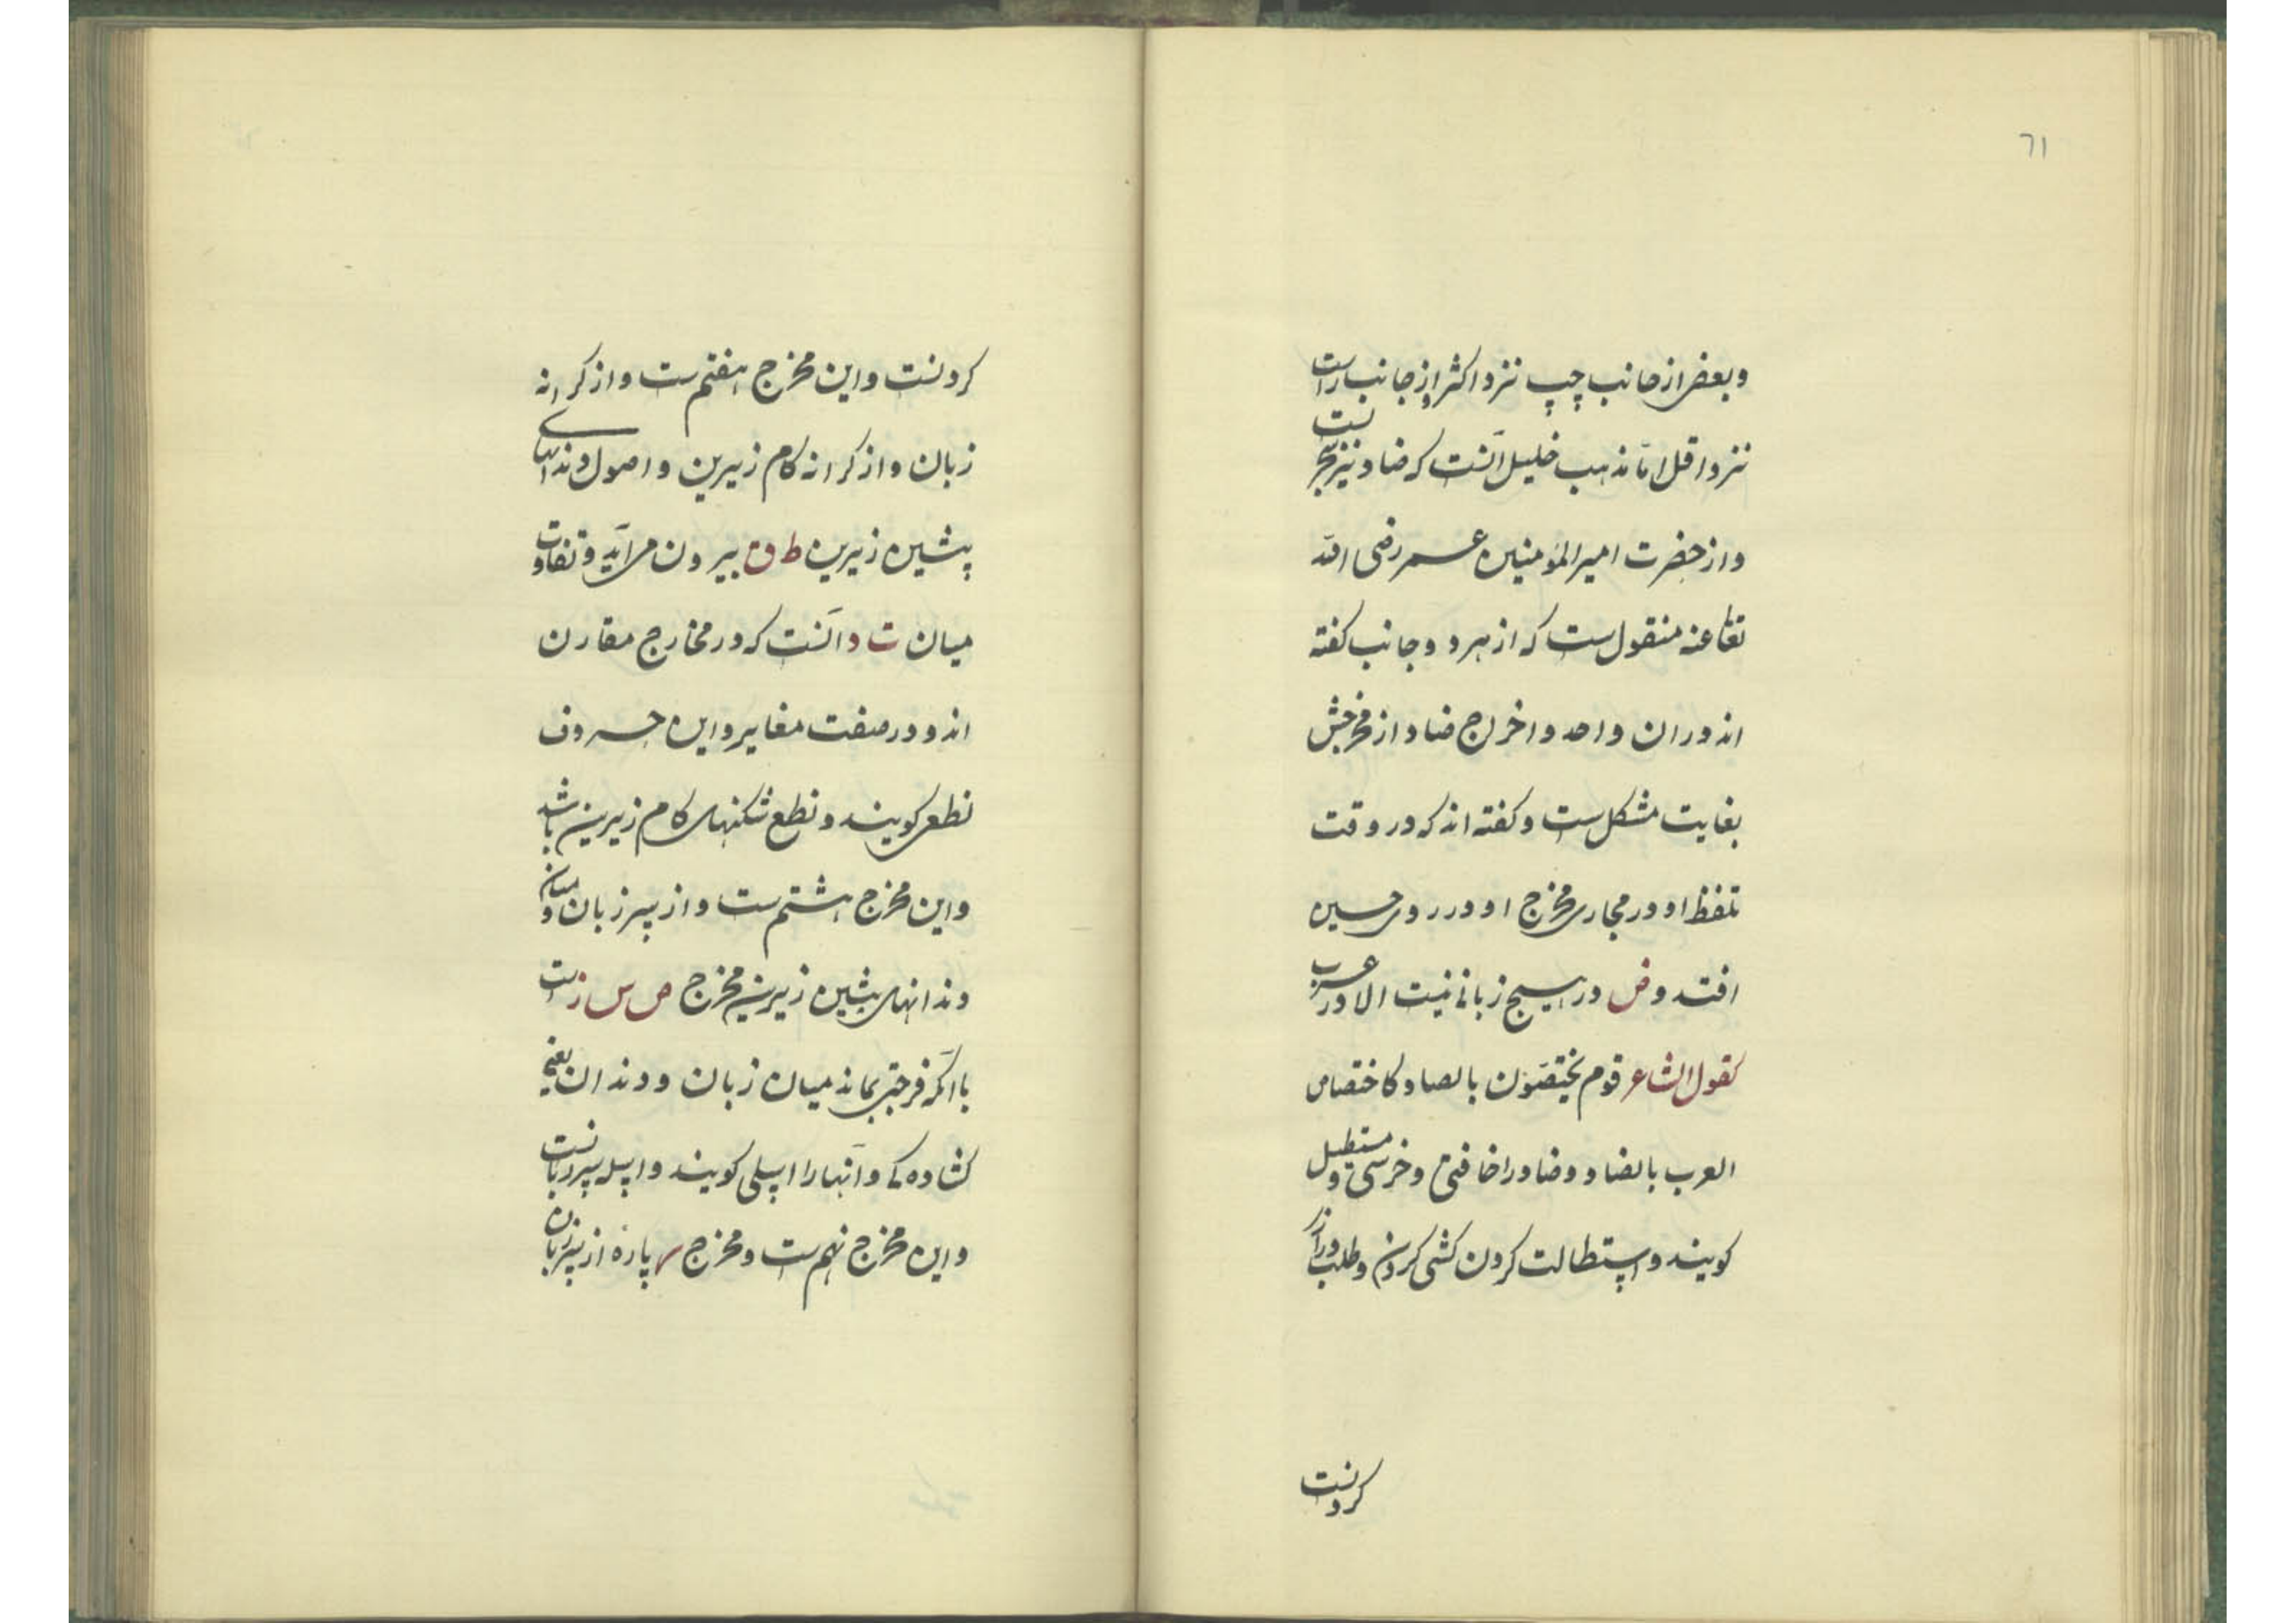 ٦١
وبعضی از جانب چپ نزد اکثر و از جانب راست
نزد اقل اما مذهب خلیل آنست که ضاد نیز شجریست
و از حضرت امیر المؤمنین عمر رضی الله
تعا عنه منقولست که از هر دو جانب گفته
اند در آن واحد و اخراج ضاد از مخرجش
بغایت مشکل ست و گفته اند که در وقت
تلفظ او در مجاری مخرج او در روی چین
افتد و ض در هیچ زبانی نیست الا در عرب
کقول الشاعر قوم یختصون بالصاد کاختصاص
العرب بالضاد و ضاد را حافتی و ضرسی و مستطیل
گویند و استطالت گردن کشی کردن و طلب دراز
کردنست
کردنست و این مخرج هفتم ست و از کرانه
زبان و از کرانه کام زیرین و اصول دندانهای
پیشین زیرین ط د ت بیرون می آید و تفاوت
میان ت د آنست که در مخارج مقارن
اند و در صفت مغایر و این حروف
نطعی گویند و نطع شکنهای کام زیرین باشد
و این مخرج هشتم ست و از سر زبان و میان
دندانهای پیشین زیرین مخرج ص س ز ست
با آنکه فرجتی بماند میان زبان و دندان یعنی
کشادگی و آنها را اسلی گویند و اسله سر زبانست
و این مخرج نهم ست و مخرج ر پاره از سر زبان